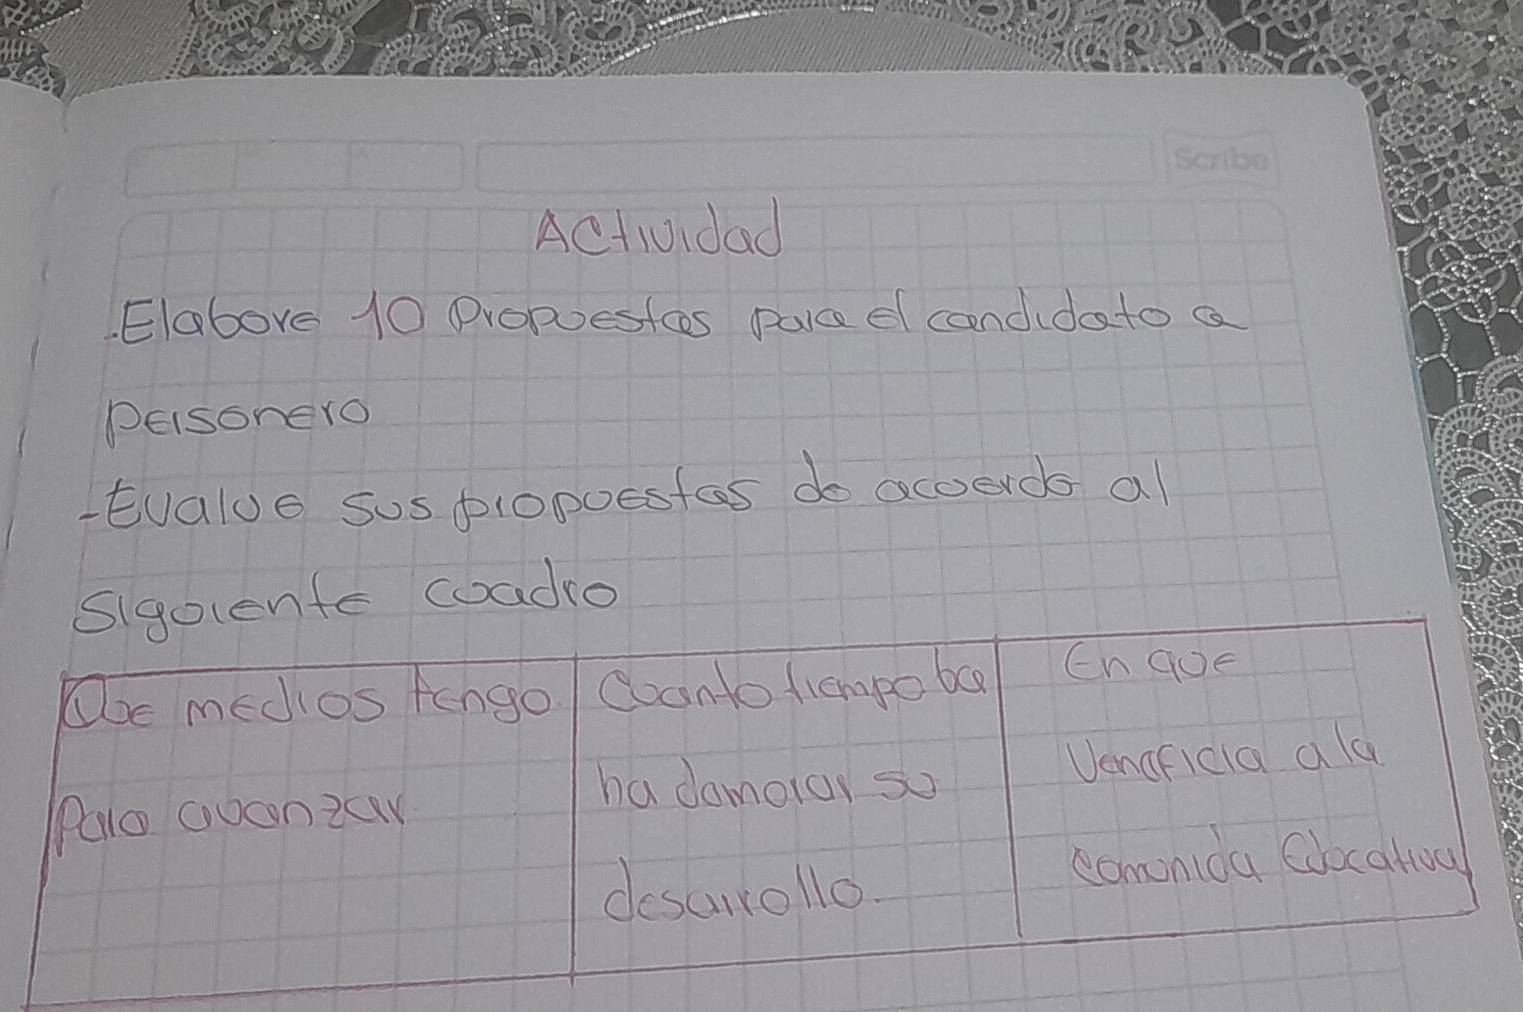 Scribe
Actividad
.Elabore 10 Propuestas para el candidato a
personero
-Evalue sus propuestas de acuerdo al
Siguiente cuadro
Que medios tengo
Para avanzar
Cuanto tiempo ba
ha damorar su
desarrollo.
En que
Veneficia a la
comunida Educativa